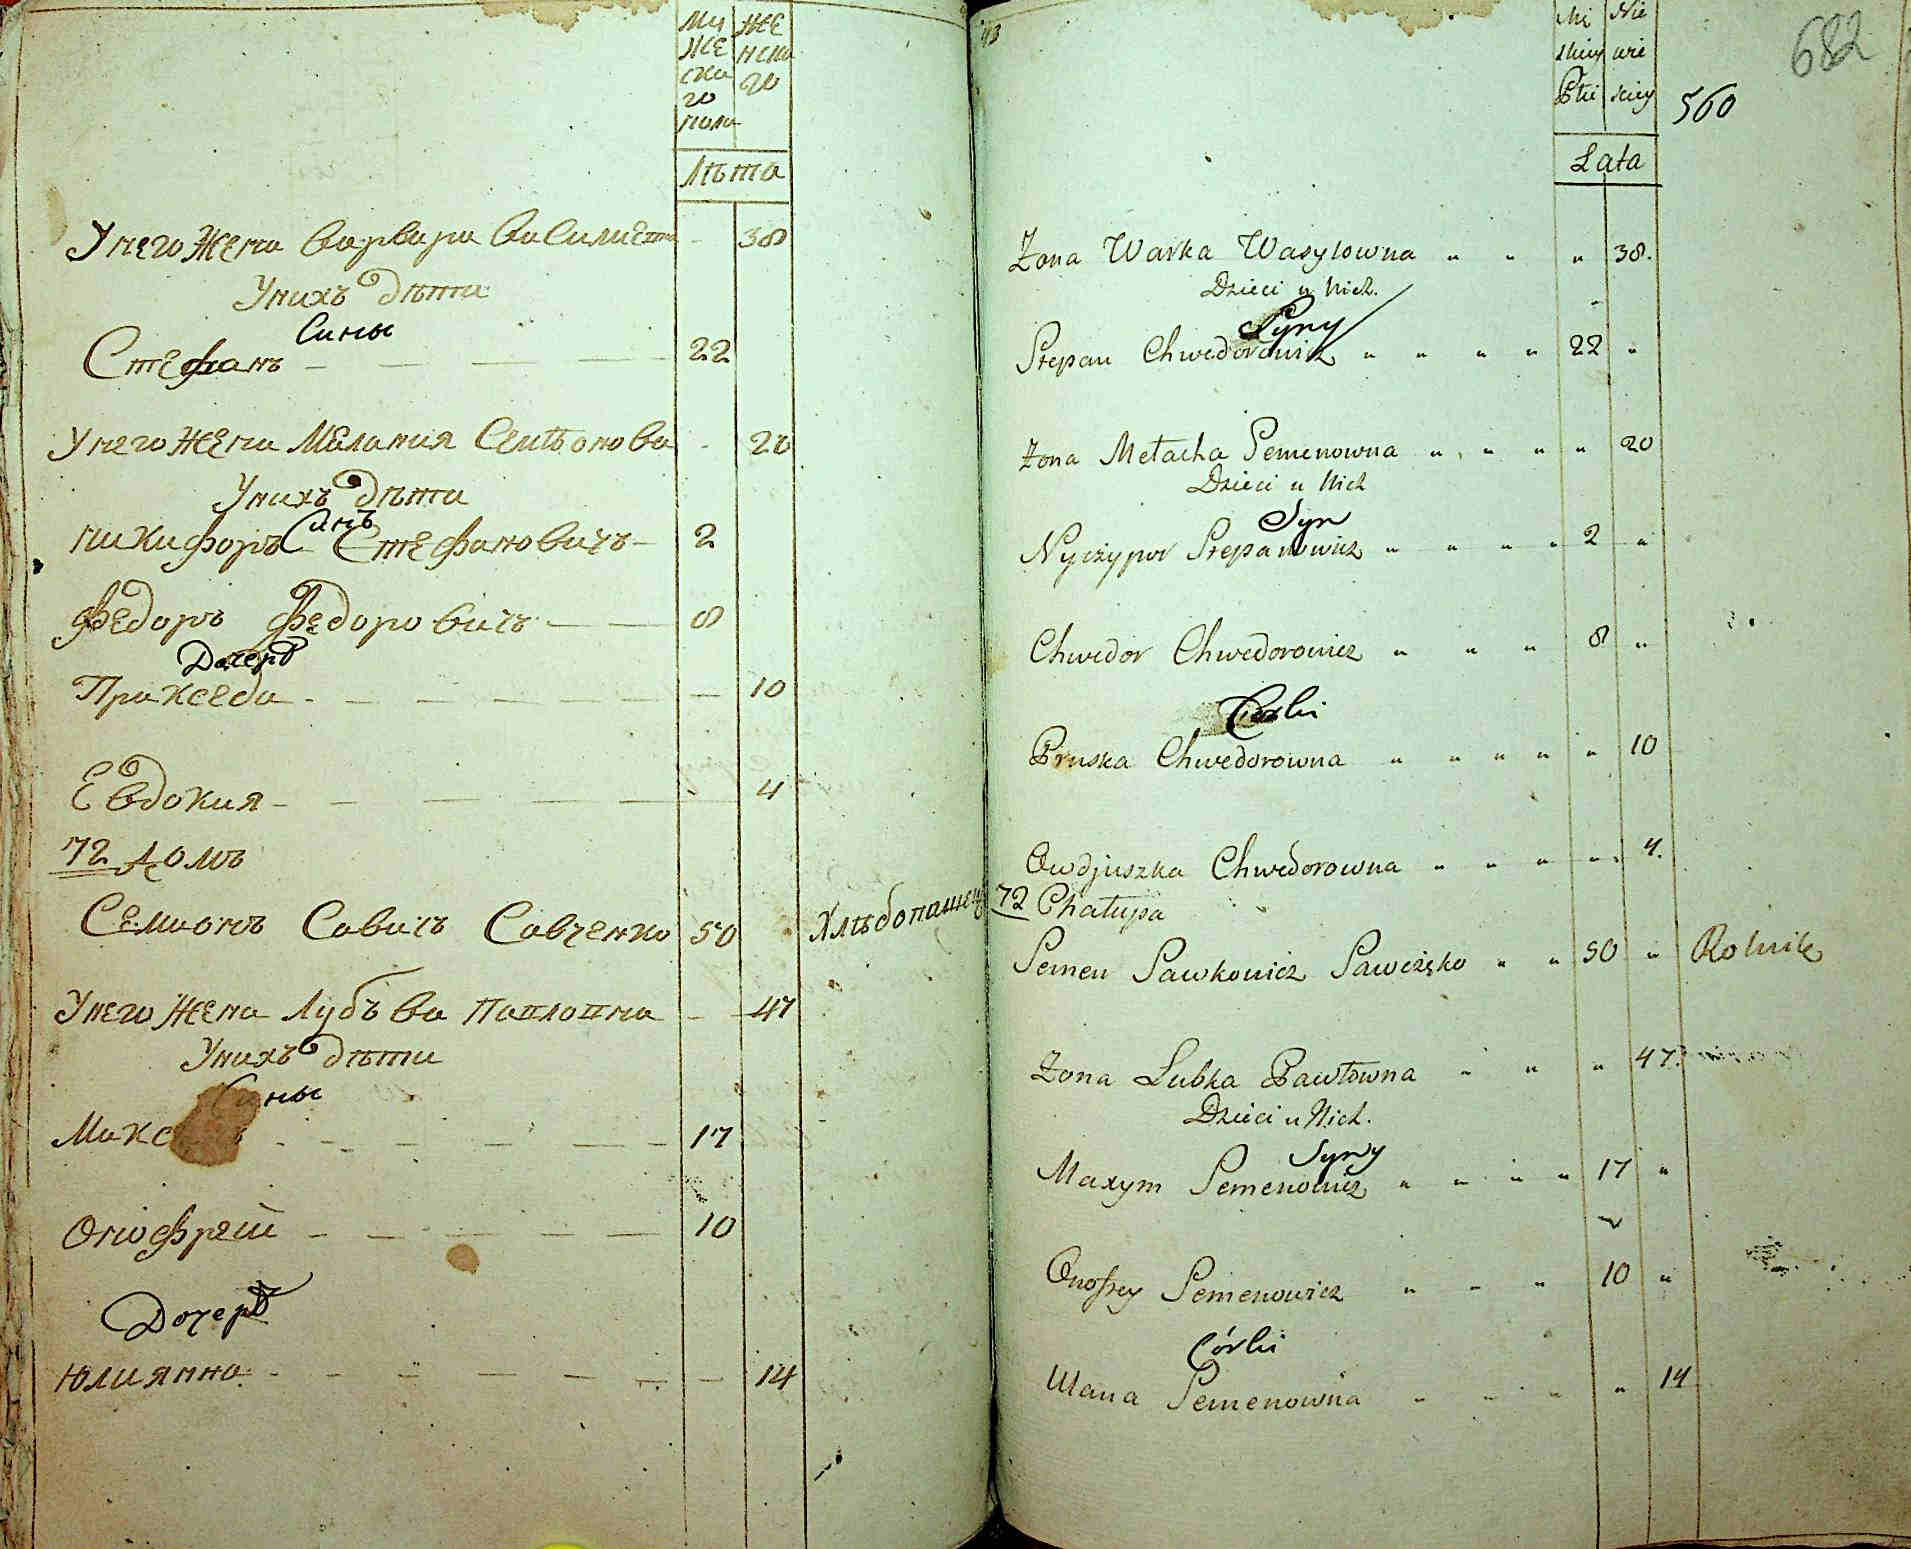 Му
же
ска
го
пола
Же
нска
го
Лѣта
У него Жена Варвара Василиева - 38
У нихъ дѣти
Сины
Стефанъ - 22
У него Жена Мелания Семіонова - 20
У нихъ дѣти
Синъ
Никифоръ Стефановичъ - 2
Федоръ Федоровичъ - 8
Дочерѣ
Пракседа - 10
Евдокия - 4
72 Домъ
Семионъ Савичъ Савченко 50 Хлѣбопашецъ
У него Жена Лубъва Павловна - 47
У нихъ дѣти
Сины
Макс - 17
Онофрей - 10
Дочерѣ
Юлиянна - 14
682
560
Mę
skiey
Płci
Nie
wie
sciey
Lata
Żona Warka Wasylowna " " " 38.
Dzieci u Nich.
Syny
Stepan Chwedorowicz " " " " 22 "
Żona Mełacha Semenowna " " " " 20
Dzieci u Nich
Syn
Nyczypor Stepanowicz " " " " 2 "
Chwedor Chwedorowicz " " " 8 "
Córki
Pruska Chwedorowna " " " " " 10
Owdjuszka Chwedorowna " " " " 4.
72 Chałupa
Semen Sawkowicz Sawczęko " " 50 " Rolnik
Żona Lubka Pawłowna " " " 47.
Dzieci u Nich.
Syny
Maxym Semenowicz " " " " 17 "
Onofrey Semenowicz " " " 10 "
Córki
Ulana Semenowna " " " " 14